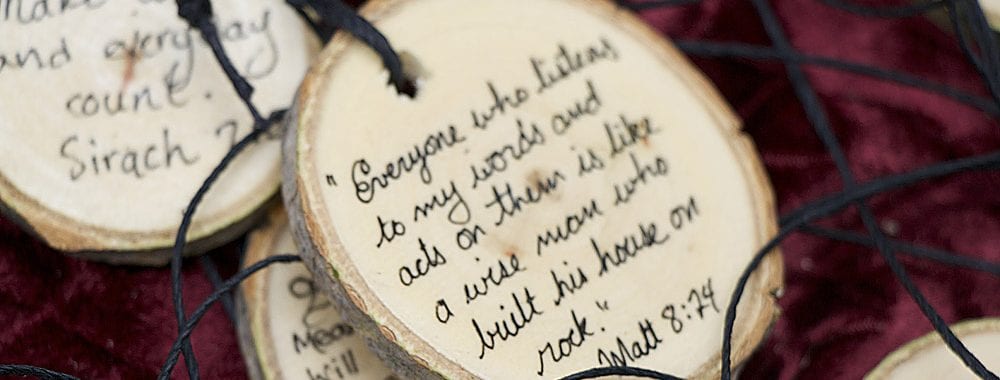 and everyday
count.
Sirach
"Everyone who listens
to my words and
acts on them is like
a wise man who
built his house on
rock."
Matt 8:24
will